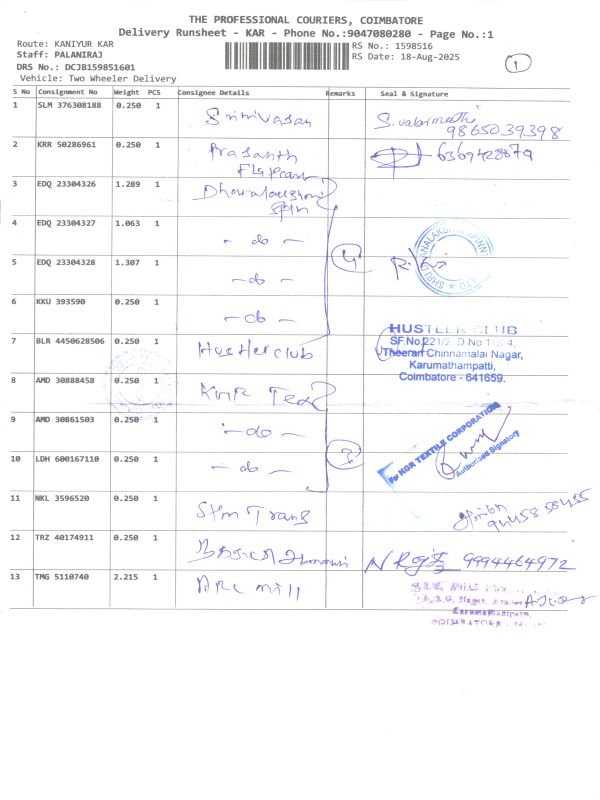 THE PROFESSIONAL COURIERS, COIMBATORE
Delivery Runsheet - KAR - Phone No.:9047080280 - Page No.:1
Route: KANIYUR KAR
RS No.: 1598516
1
Staff: PALANIRAJ
RS Date: 18-Aug-2025
DRS No.: DCJB159851601
Vehicle: Two Wheeler Delivery
S No Consignment No Weight PCS Consignee Details Remarks Seal & Signature
1 SLM 376308188 0.250 1 Srinivasan
9865039398
2 KRR 50286961 0.250 1 Prasanth 6369428879
Flipcart
3 EDQ 23304326 1.289 1
Spin
4 EDQ 23304327 1.063 1 - do -
4
5 EDQ 23304328 1.307 1 - do -
6 KKU 393590 0.250 1 - do -
HUSTLER CLUB
7 BLR 4450628506 0.250 1 Hustler club
SF.No.221/2
Theeran Chinnamalai Nagar,
Karumathampatti,
Coimbatore - 641659.
8 AMD 30888458 0.250 1 KGR Tex
9 AMD 30861503 0.250 1 - do -
For KGR TEXTILE CORPORATION
Authorised Signatory
3
10 LDH 600167110 0.250 1 - do -
11 NKL 3596520 0.250 1
12 TRZ 40174911 0.250 1
9994464972
13 TMG 5110740 2.215 1 ARC mill